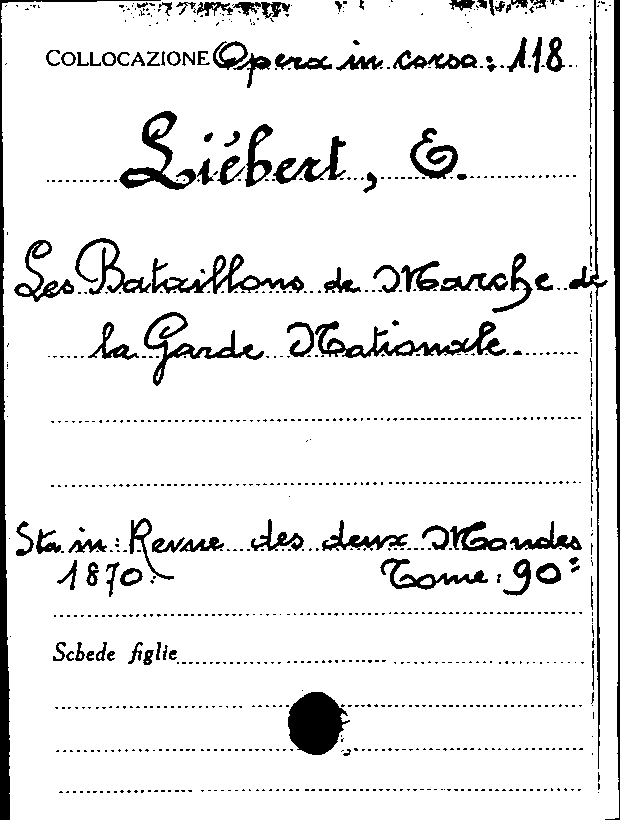 COLLOCAZIONE Opera in corso: 118
Liébert, E.
Les Bataillons de Marche de
la Garde Nationale.
Sta in: Revue des deux Mondes
1870.- Tome: 90°
Schede figlie